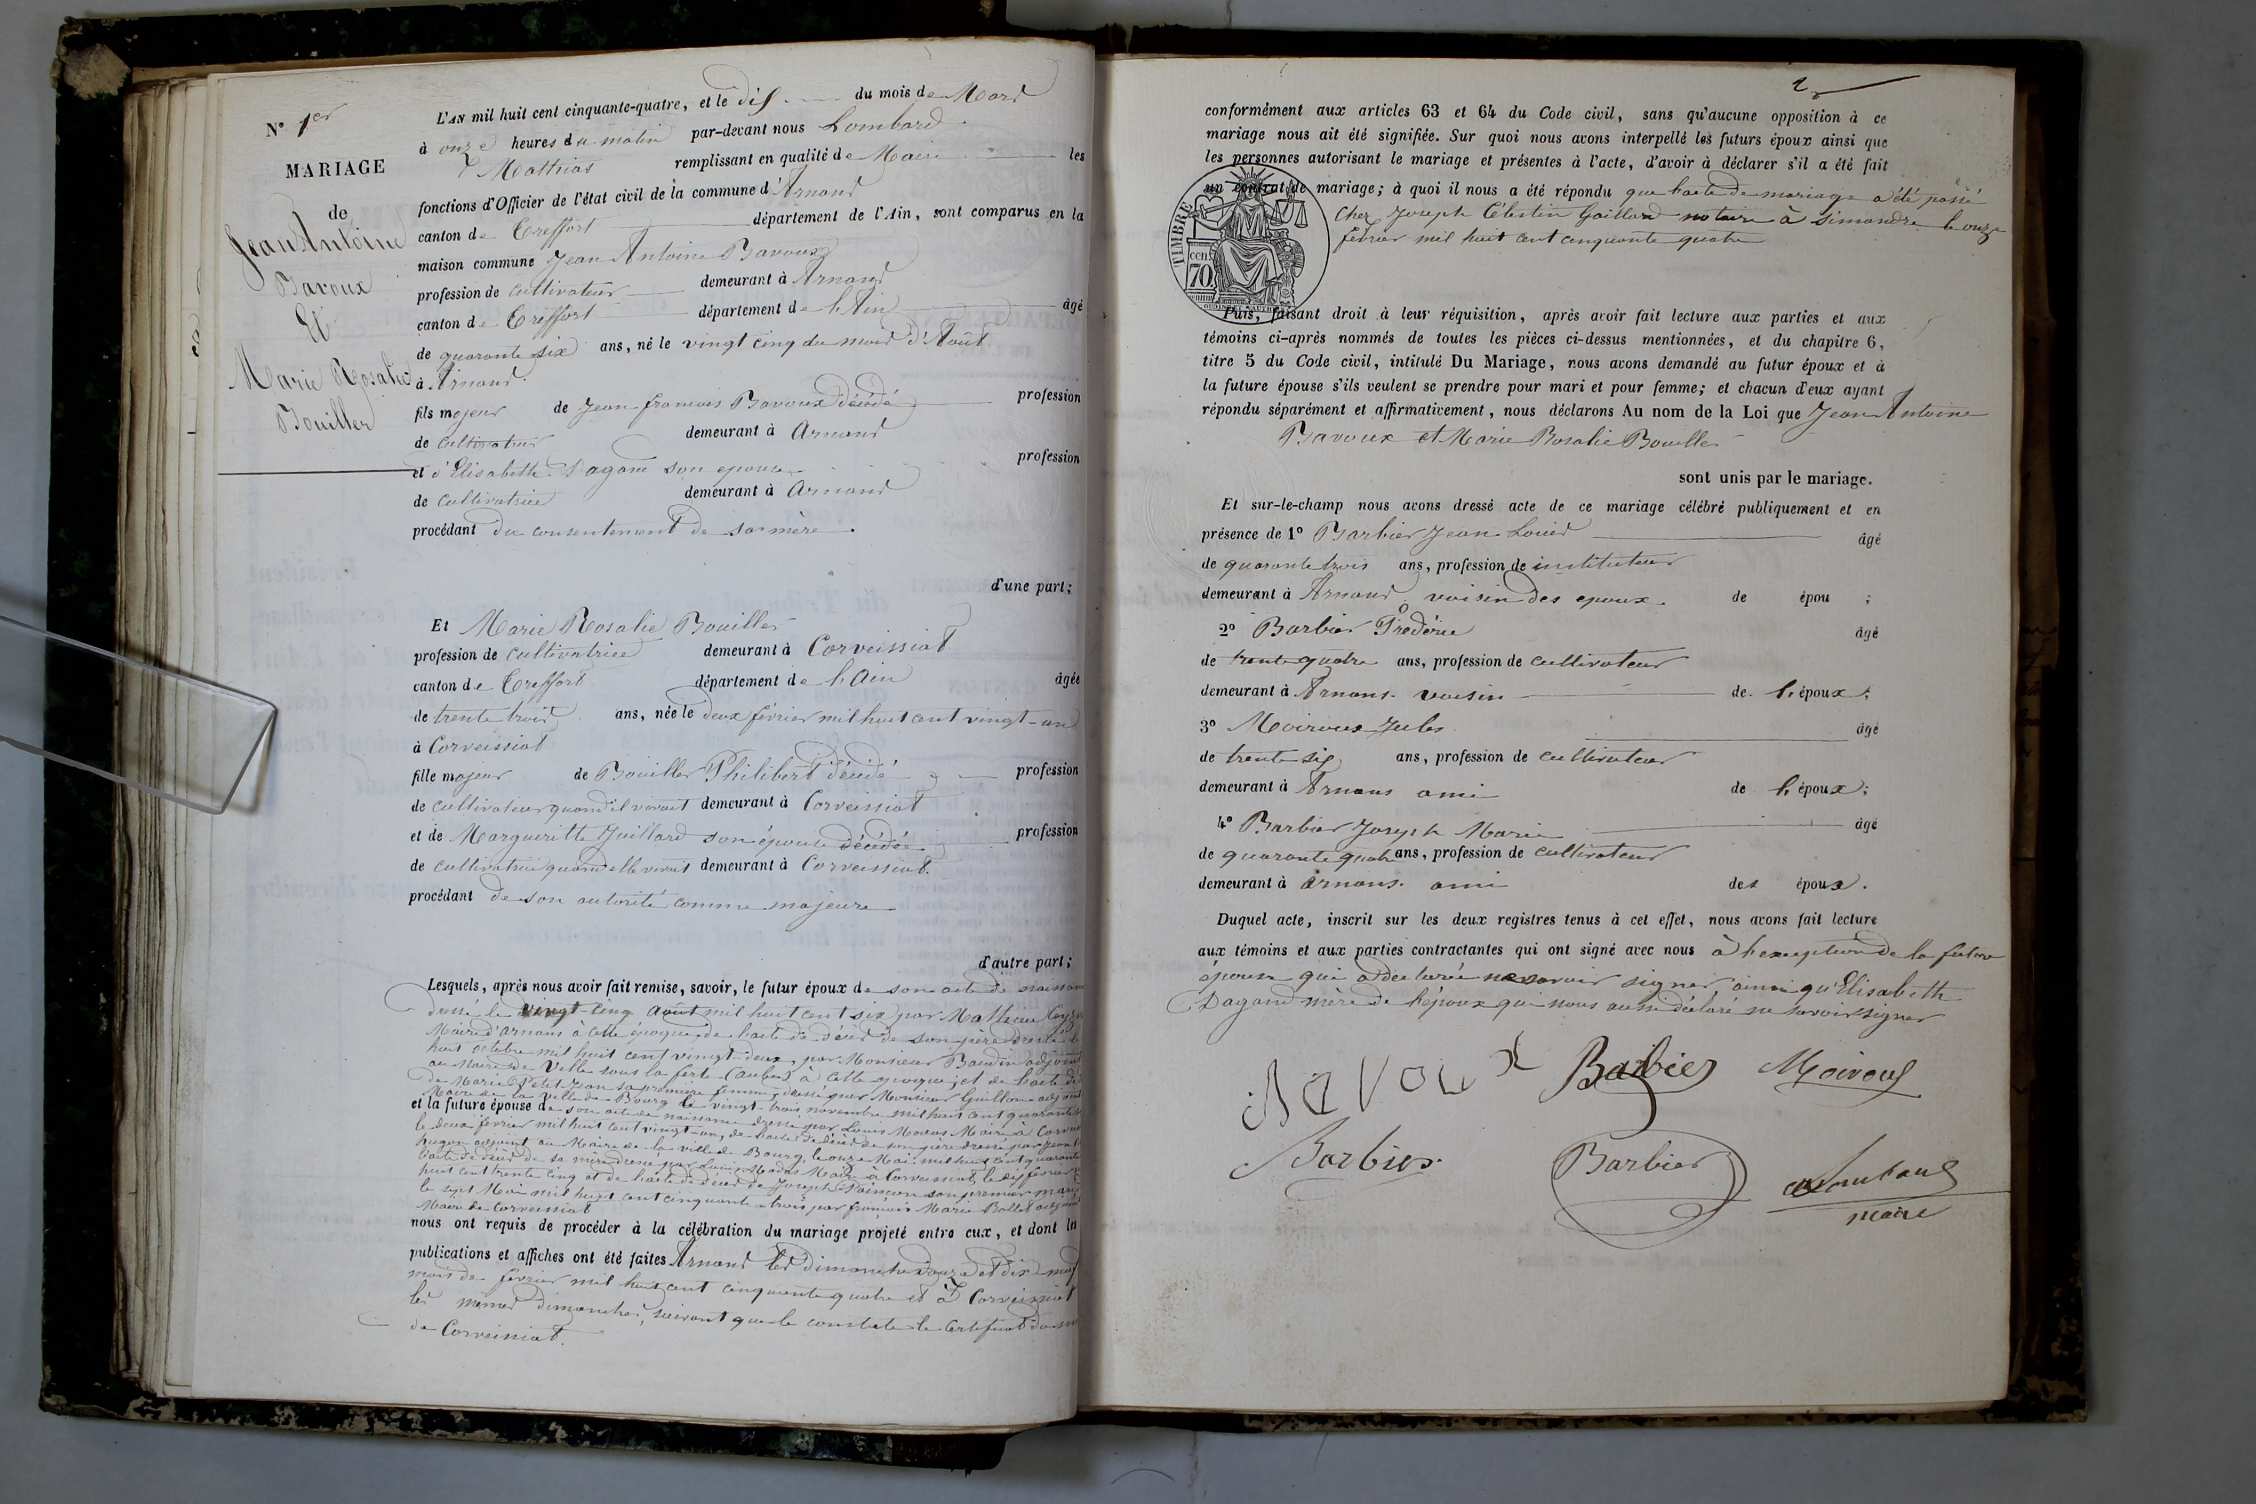 N° 1er
MARIAGE
de
Jean Antoine
Bavoux
Et
Marie Rosalie
Bouiller
L'AN mil huit cent cinquante-quatre, et le dix du mois de Mars
à onze heures du matin par-devant nous Lombard
Mathias remplissant en qualité de Maire les
fonctions d'Officier de l'état civil de la commune d'Arnans
canton de Treffort département de l'Ain, sont comparus en la
maison commune Jean Antoine Bavoux
profession de cultivateur demeurant à Arnans
canton de Treffort département de l'Ain âgé
de quarante six ans, né le vingt cinq du mois d'Août
à Arnans
fils majeur de Jean françois Bavoux décédé profession
de cultivateur demeurant à Arnans
et d'Elisabeth Dagand son epouse profession
de cultivatrice demeurant à Arnans
procédant du consentement de sa mère
d'une part;
Et Marie Rosalie Bouiller
profession de cultivatrice demeurant à Corveissiat
canton de Treffort département de l'Ain âgée
de trente trois ans, née le deux février mil huit cent vingt-un
à Corveissiat
fille majeur de Bouiller Philibert décédé profession
de cultivateur quand il vivait demeurant à Corveissiat
et de Margueritte Juillard son épouse décédée profession
de cultivatrice quand elle vivait demeurant à Corveissiat.
procédant de son autorité comme majeure
d'autre part;
Lesquels, après nous avoir fait remise, savoir, le futur époux de son acte de naissance
dressé le vingt-cinq Août mil huit cent six par Mathieu
Maire d'arnans à cette époque, de l'acte de décès de son père dressé le
huit octobre mil huit cent vingt-deux, par Monsieur Baudin adjoint
au Maire de Ville sous la ferté (aube) à cette époque, et de l'acte de
de Marie Petit Jean sa première femme, dressé par Monsieur Guillon adjoint
Maire de la ville de Bourg le vingt-trois novembre mil huit cent quarante
et la future épouse de son acte de naissance dressé par Louis Modas Maire à Corveissiat
le deux février mil huit cent vingt-un, de l'acte de décès de son père dressé par Jean
hugon adjoint au Maire de la ville de Bourg, le onze Mai mil huit cent quarante
l'acte de décès de sa mère dressé par Louis Modas Maire à Corveissiat, le dix février
huit cent trente cinq et de l'acte de décès de Joseph Poinçon son premier mari
le sept Mai mil huit cent cinquante-trois par françois Marie Bollet adjoint
Maire de Corveissiat
nous ont requis de procéder à la célébration du mariage projeté entre eux, et dont les
publications et affiches ont été faites Arnans les dimanches douze et dix-neuf
mois de février mil huit cent cinquante quatre et à Corveissiat
les mêmes dimanches, suivant que le constate le certificat du
de Corveissiat.
2
conformément aux articles 63 et 64 du Code civil, sans qu'aucune opposition à ce
mariage nous ait été signifiée. Sur quoi nous avons interpellé les futurs époux ainsi que
les personnes autorisant le mariage et présentes à l'acte, d'avoir à déclarer s'il a été fait
un contrat de mariage; à quoi il nous a été répondu que l'acte de mariage a été passé
chez Joseph Célestin Gaillard notaire à Simandre le onze
février mil huit cent cinquante quatre
TIMBRE
cen.
70
Puis, faisant droit à leur réquisition, après avoir fait lecture aux parties et aux
témoins ci-après nommés de toutes les pièces ci-dessus mentionnées, et du chapitre 6,
titre 5 du Code civil, intitulé Du Mariage, nous avons demandé au futur époux et à
la future épouse s'ils veulent se prendre pour mari et pour femme; et chacun d'eux ayant
répondu séparément et affirmativement, nous déclarons Au nom de la Loi que Jean Antoine
Bavoux et Marie Rosalie Bouiller
sont unis par le mariage.
Et sur-le-champ nous avons dressé acte de ce mariage célébré publiquement et en
présence de 1° Barbier Jean Louis âgé
de quarante trois ans, profession de instituteur
demeurant à Arnans voisin des epoux. de épou ;
2° Barbier Frédéric âgé
de trente quatre ans, profession de cultivateur
demeurant à Arnans voisin de l'époux;
3° Moiroux Jules âgé
de trente six ans, profession de cultivateur
demeurant à Arnans ami de l'époux;
4° Barbier Joseph Marie âgé
de quarante quatre ans, profession de cultivateur
demeurant à arnans. ami des époux.
Duquel acte, inscrit sur les deux registres tenus à cet effet, nous avons fait lecture
aux témoins et aux parties contractantes qui ont signé avec nous à l'exception de la future
épouse qui a déclarée ne savoir signer ainsi qu'Elisabeth
Dagand mère de l'époux qui nous aussi déclaré ne savoir signer
Bavoux Barbier Moiroux
Barbier Barbier Lombard
maire